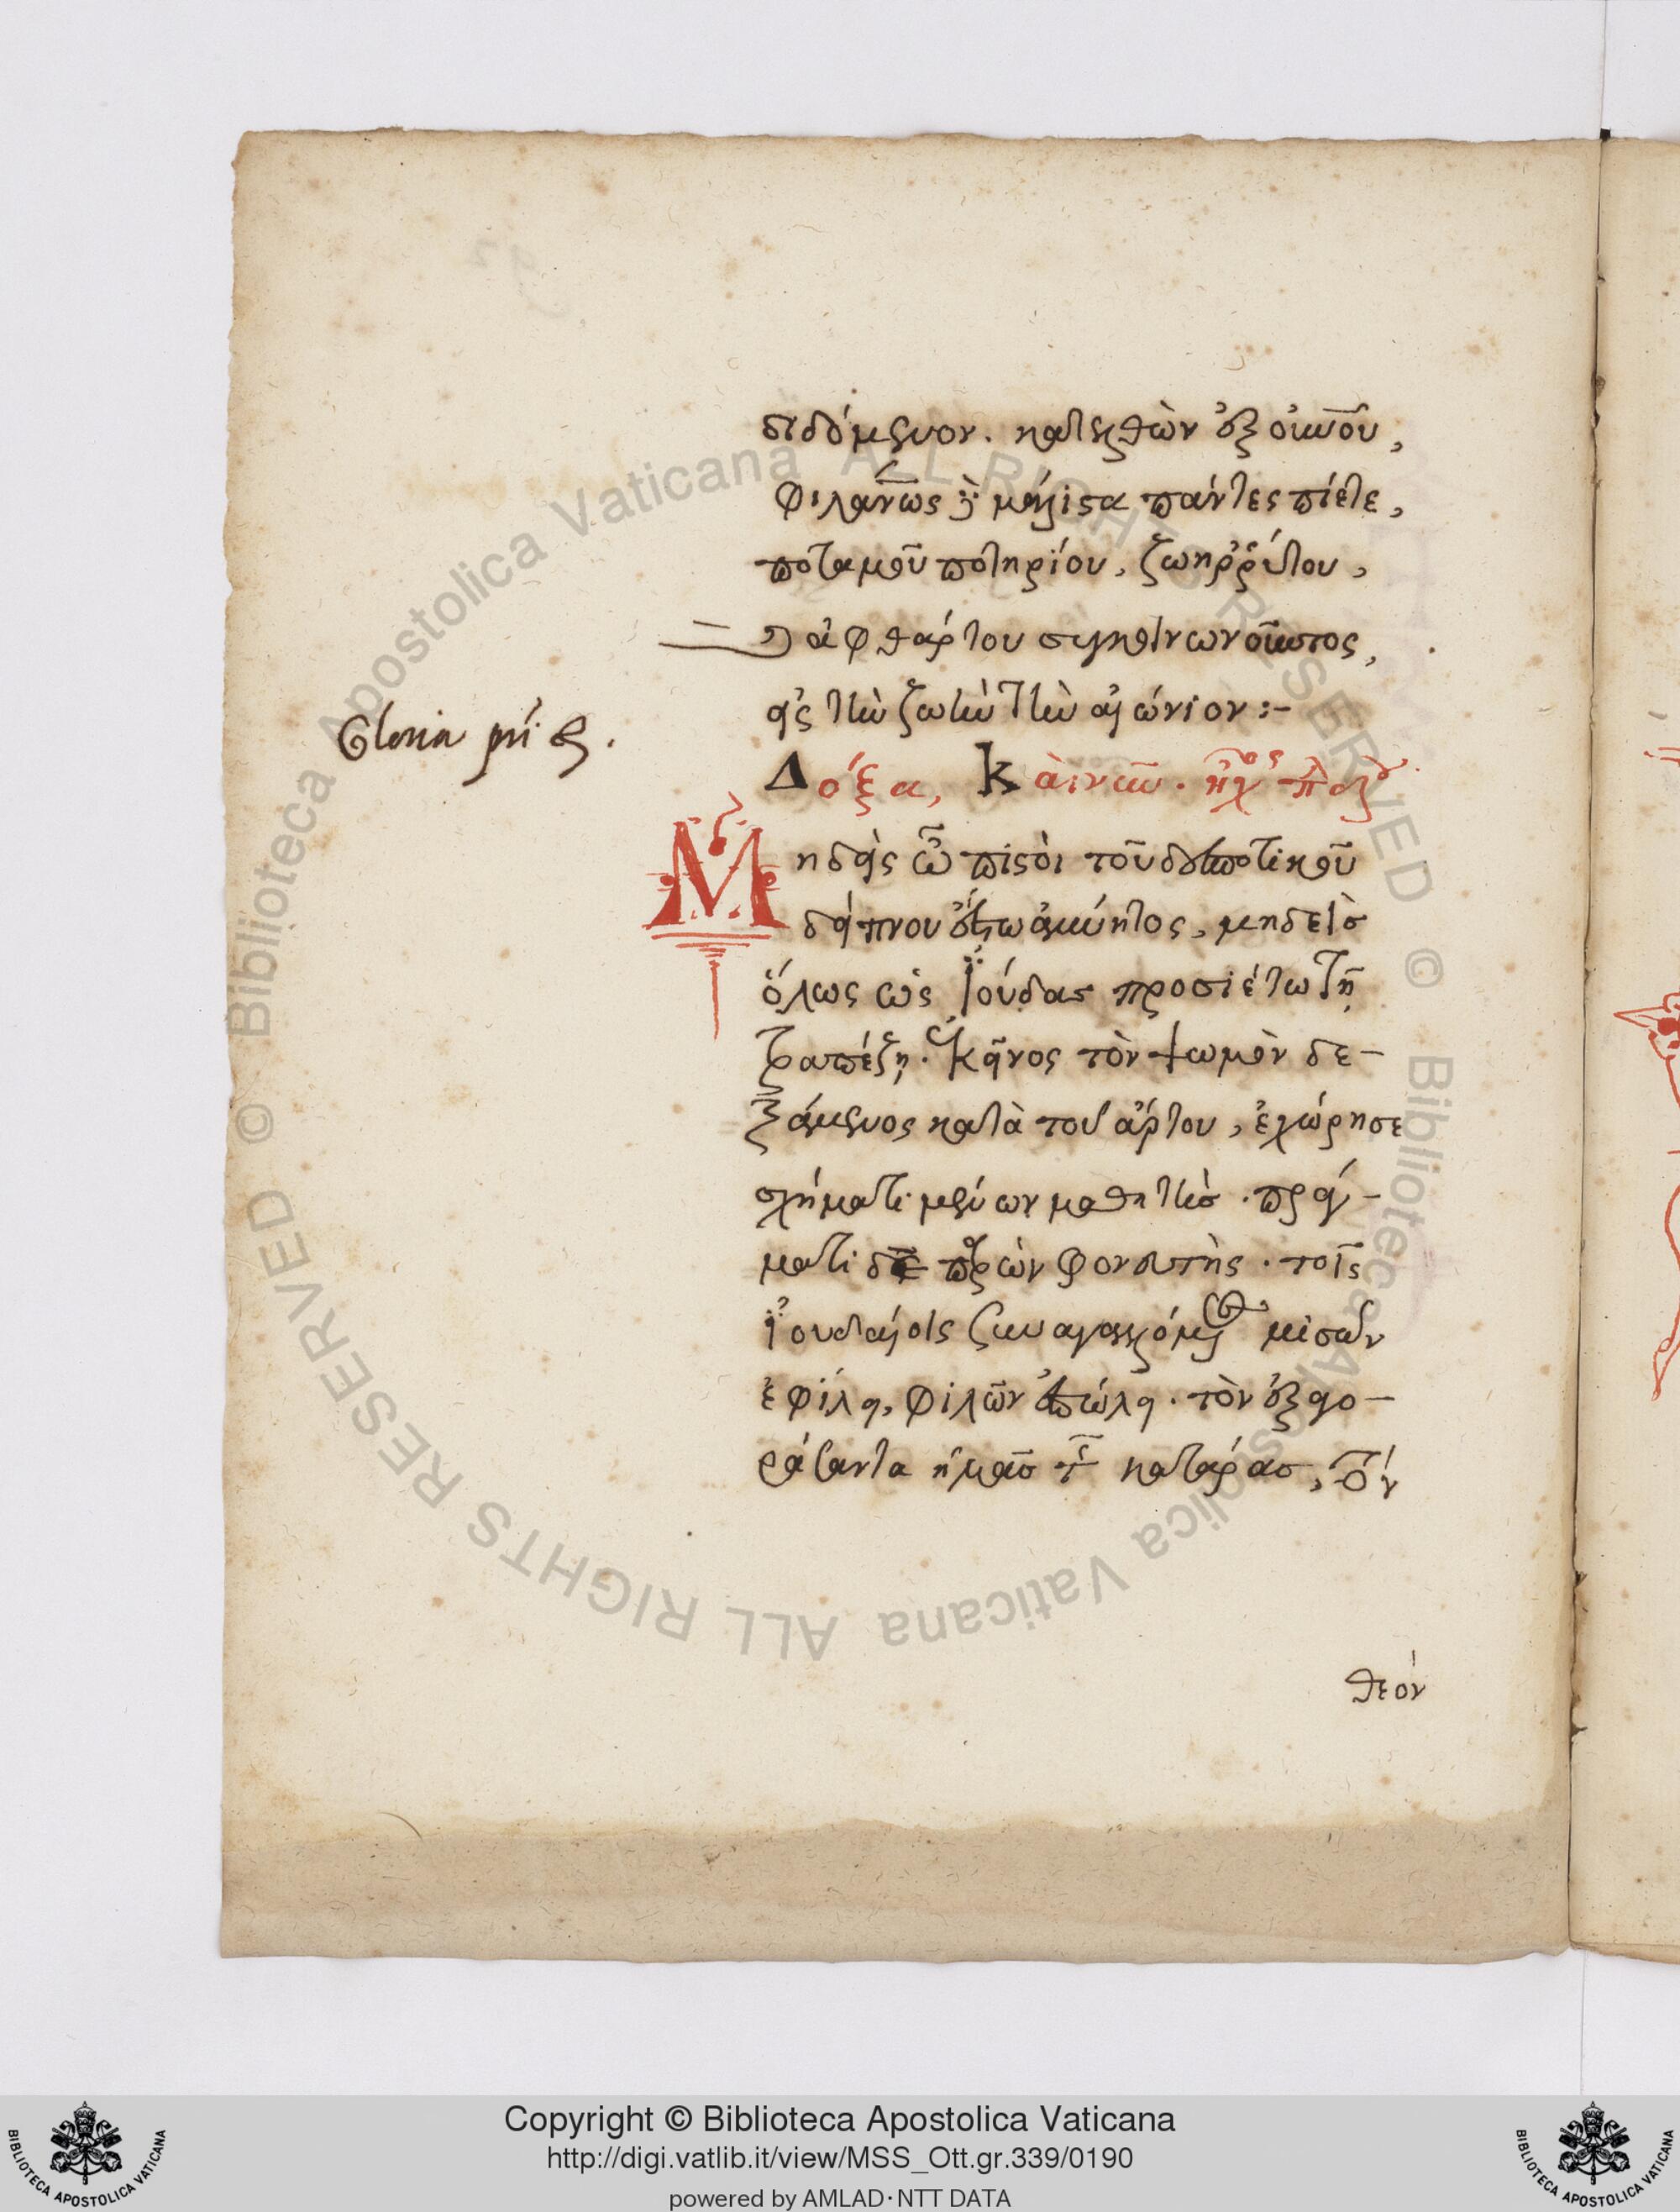 διδόμενον. κατελθὼν ἐξ οὐνοῦ,
φιλανῶς καὶ μάλιστα πάντες πίετε,
ποταμοῦ ποτηρίου, ζωηῤῥύτου,
ἀφθάρτου
εἰς τὴν ζωὴν τὴν αἰώνιον:-
Gloria pri &.
Δόξα, Κὰι νῦν. ἦχος πλ
Μηδεὶς ὦ πιστοὶ τοῦ δεσποτικοῦ
δείπνου ἔστω ἀμύητος, μηδεὶσ
ὅλως ὡς Ἰούδας προσιέτω τῇ
τραπέζῃ. Ἐκεῖνος τὸν ψωμὸν δε-
ξάμενος κατὰ τοῦ ἄρτου, ἐχώρησε
σχήματι μὲν ὢν μαθητὴσ. πράγ-
ματι δὲ παρὼν φονευτὴς. τοῖς
Ἰουδαίοις συναγαλλόμενος μισῶν
ἐφίλει, φιλῶν ἐπώλει. τὸν ἐξαγο-
ράσαντα ἡμᾶσ τῆς κατάρασ, τὸν
θεὸν
Copyright © Biblioteca Apostolica Vaticana
http://digi.vatlib.it/view/MSS_Ott.gr.339/0190
powered by AMLAD·NTT DATA
BIBLIOTECA APOSTOLICA VATICANA
BIBLIOTECA APOSTOLICA VATICANA
© Biblioteca Apostolica Vaticana ALL RIGHTS RESERVED © Biblioteca Apostolica Vaticana ALL RIGHTS RESERVED